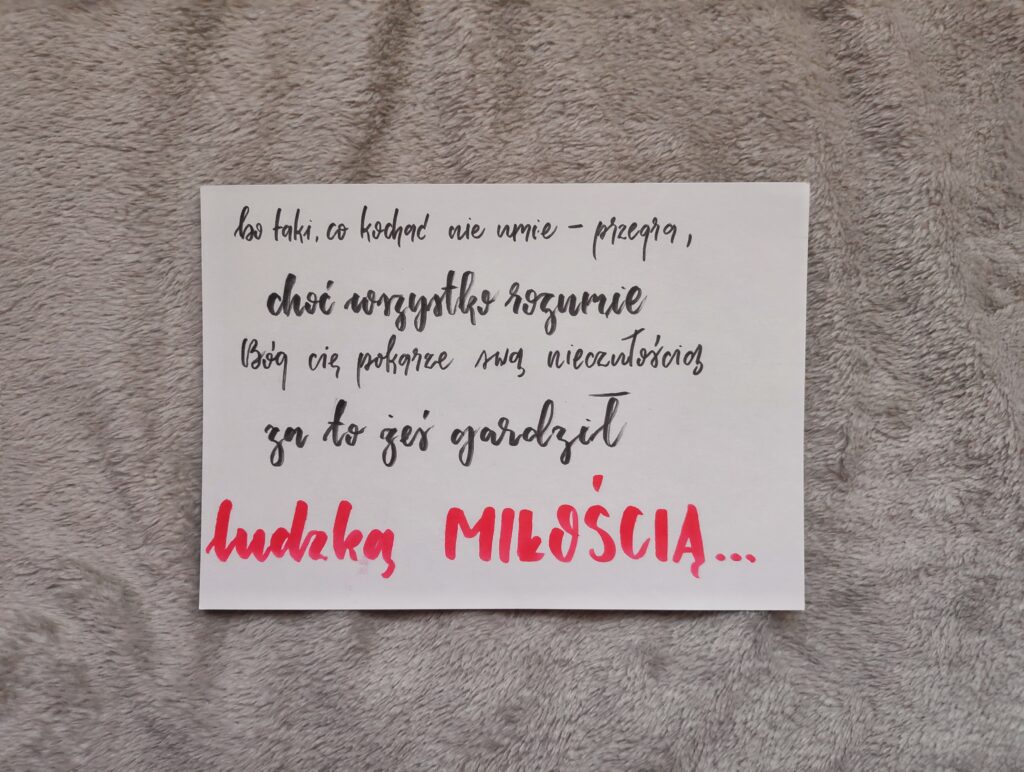 bo taki, co kochać nie umie – przegra,
choć wszystko rozumie
Bóg cię pokarze swą nieczułością
za to żeś gardził
ludzką MIŁOŚCIĄ...